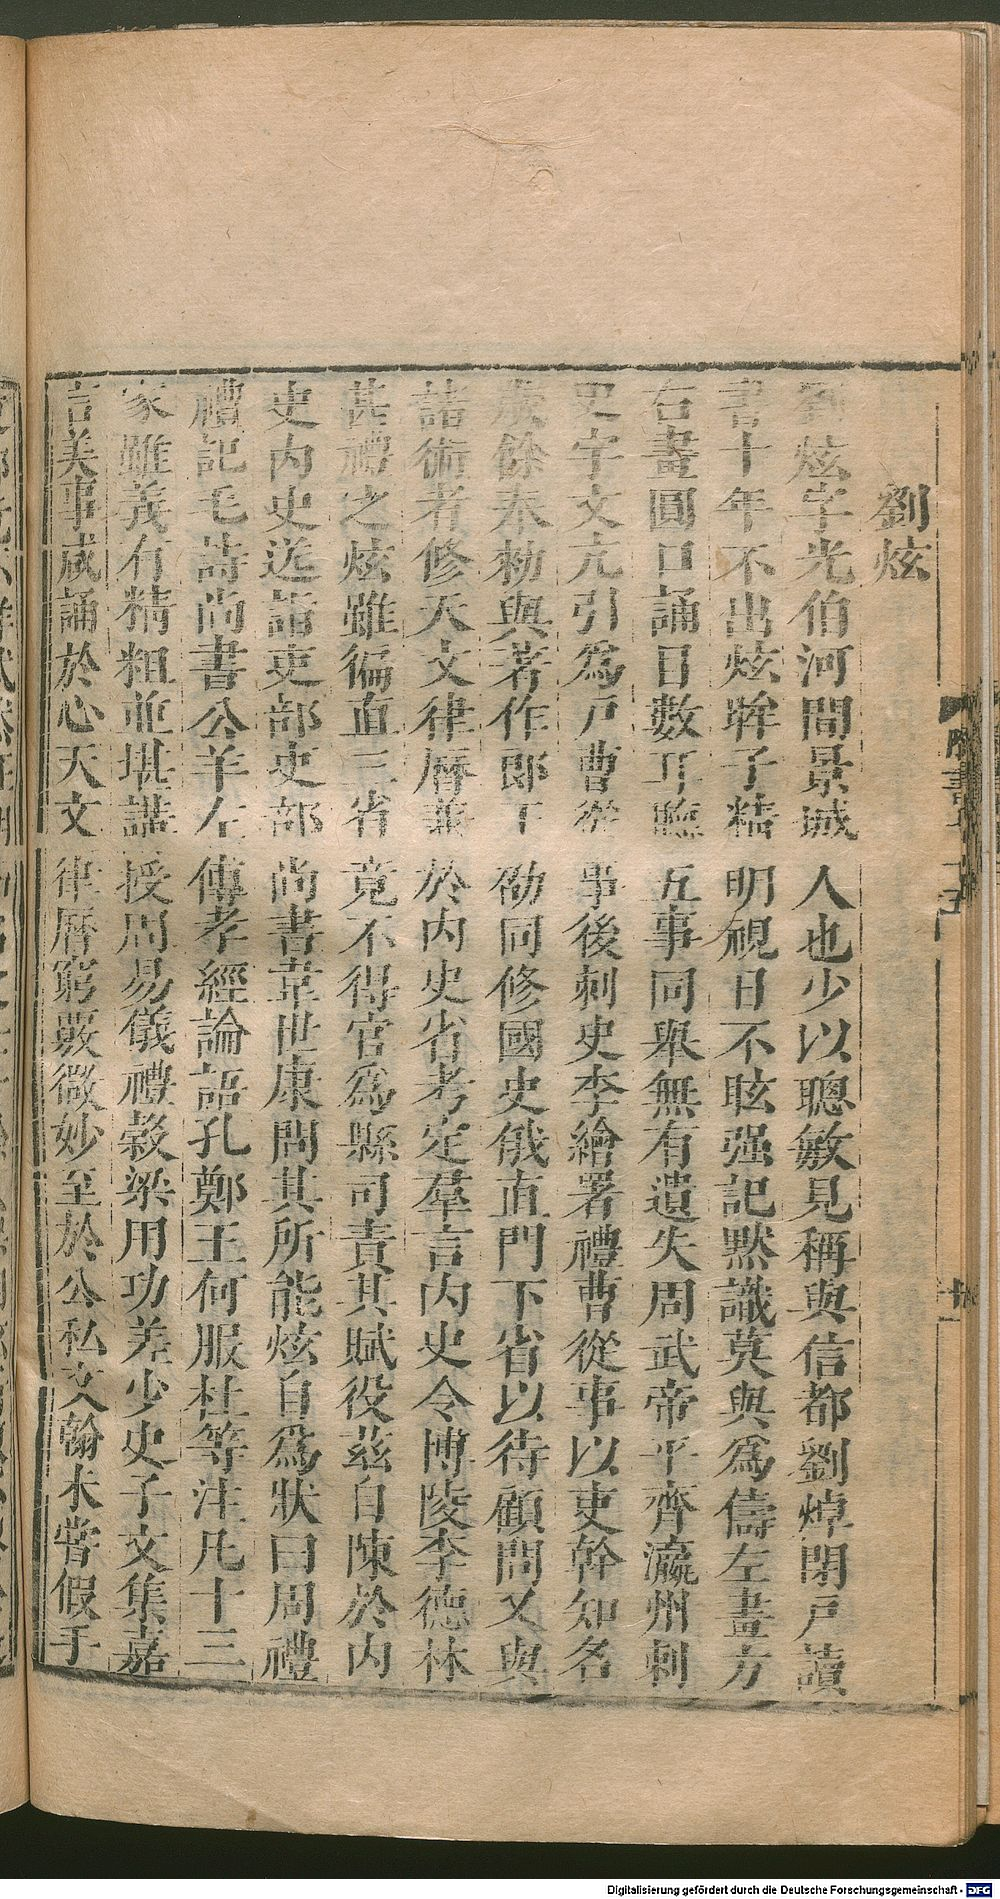 劉炫
劉炫字光伯河間景城人也少以聰敏見稱與信都劉焯閉戸讀
書十年不出炫眸子精明視日不眩强記默識莫與爲儔左畫方
右畫圓口誦目數耳聽五事同舉無有遺失周武帝平齊瀛州刺
史宇文亢引爲戸曹從事後刺史李繪署禮曹從事以吏幹知名
歲餘奉勑與著作郎王劭同修國史俄直門下省以待顧問又與
諸術者修天文律曆兼於内史省考定羣言内史令博陵李德林
甚禮之炫雖徧直三省竟不得官爲縣司責其賦役茲自陳於内
史内史送詣吏部吏部尚書韋世康問其所能炫自爲狀曰周禮
禮記毛詩尚書公羊左傳孝經論語孔鄭王何服杜等注凡十三
家雖義有精粗並堪講授周易儀禮榖梁用功差少史子文集嘉
言美事咸誦於心天文律曆窮覈微妙至於公私文翰未嘗假手
Digitalisierung gefördert durch die Deutsche Forschungsgemeinschaft - DFG